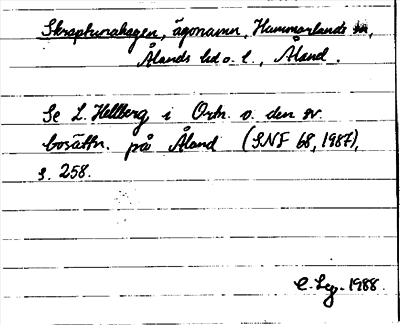 Skrapturahagen, ägonamn, Hammarlands sn,
Ålands hd o. l., Åland.
Se L. Hellberg i Ortn. o. den sv.
bosättn. på Åland (SNF 68, 1987),
s. 258.
1988